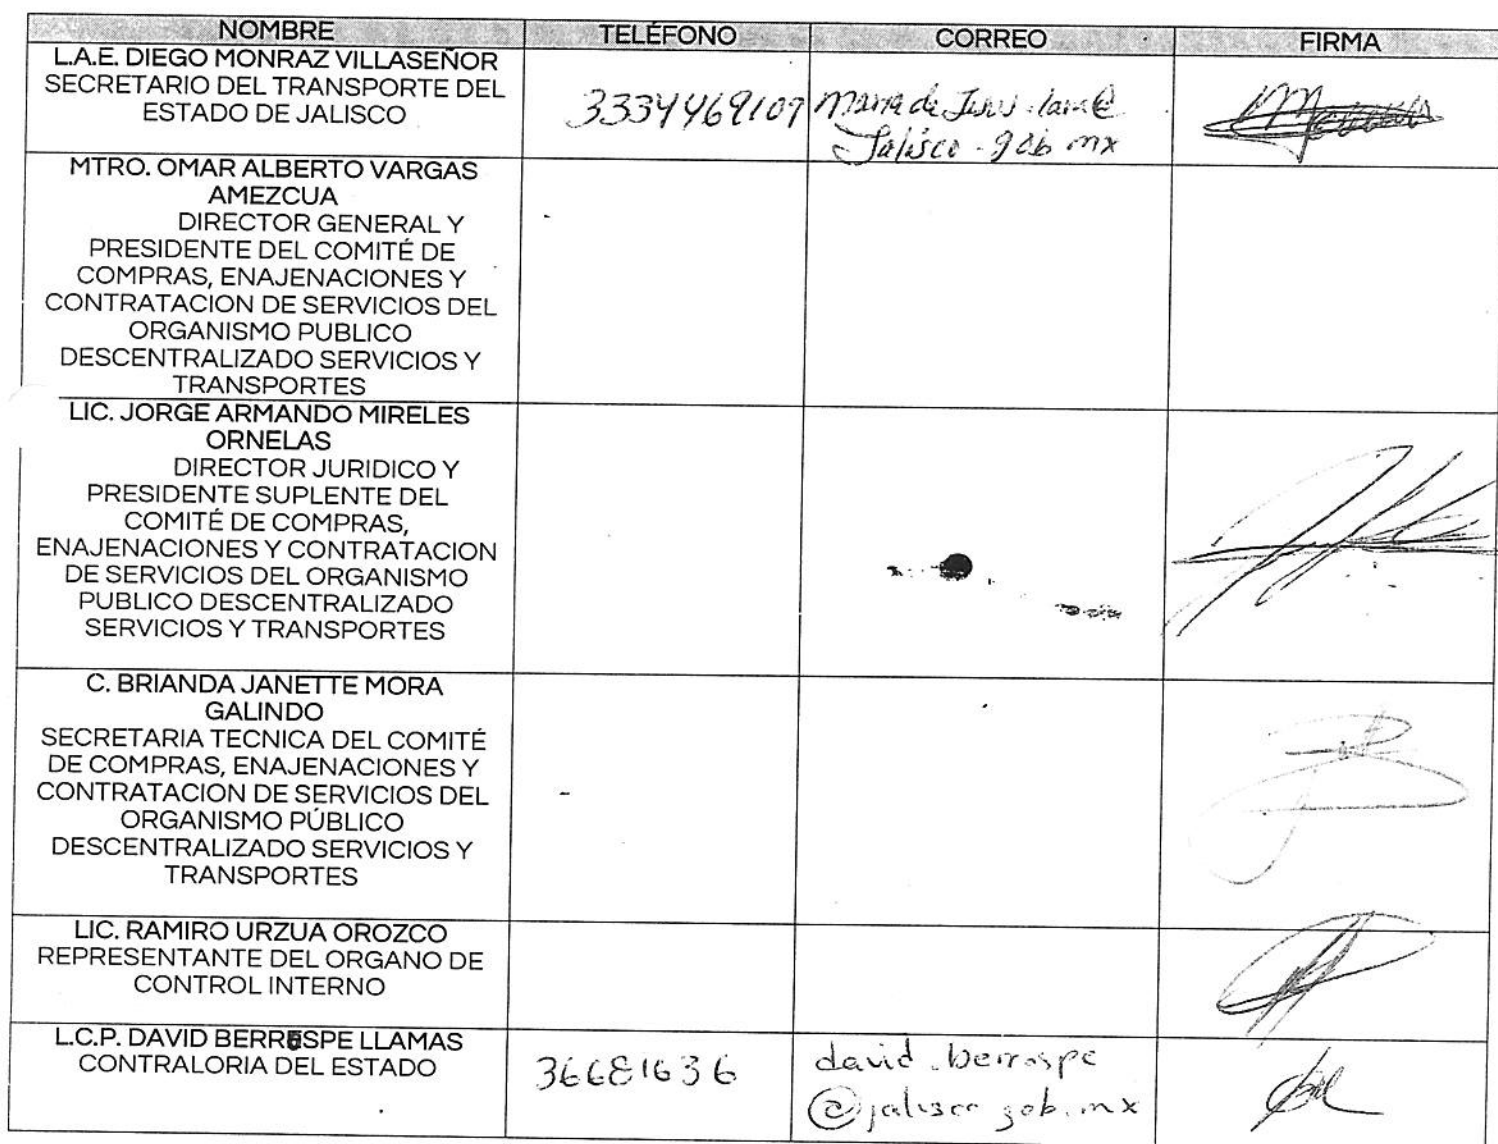 NOMBRE TELÉFONO CORREO FIRMA
L.A.E. DIEGO MONRAZ VILLASEÑOR
SECRETARIO DEL TRANSPORTE DEL
ESTADO DE JALISCO
3334469107
de Jesus
Jalisco.gob.mx
MTRO. OMAR ALBERTO VARGAS
AMEZCUA
DIRECTOR GENERAL Y
PRESIDENTE DEL COMITÉ DE
COMPRAS, ENAJENACIONES Y
CONTRATACION DE SERVICIOS DEL
ORGANISMO PUBLICO
DESCENTRALIZADO SERVICIOS Y
TRANSPORTES
LIC. JORGE ARMANDO MIRELES
ORNELAS
DIRECTOR JURIDICO Y
PRESIDENTE SUPLENTE DEL
COMITÉ DE COMPRAS,
ENAJENACIONES Y CONTRATACION
DE SERVICIOS DEL ORGANISMO
PUBLICO DESCENTRALIZADO
SERVICIOS Y TRANSPORTES
C. BRIANDA JANETTE MORA
GALINDO
SECRETARIA TECNICA DEL COMITÉ
DE COMPRAS, ENAJENACIONES Y
CONTRATACION DE SERVICIOS DEL
ORGANISMO PÚBLICO
DESCENTRALIZADO SERVICIOS Y
TRANSPORTES
LIC. RAMIRO URZUA OROZCO
REPRESENTANTE DEL ORGANO DE
CONTROL INTERNO
L.C.P. DAVID BERRESPE LLAMAS
CONTRALORIA DEL ESTADO
36681636
david.berrospe
@jalisco.gob.mx